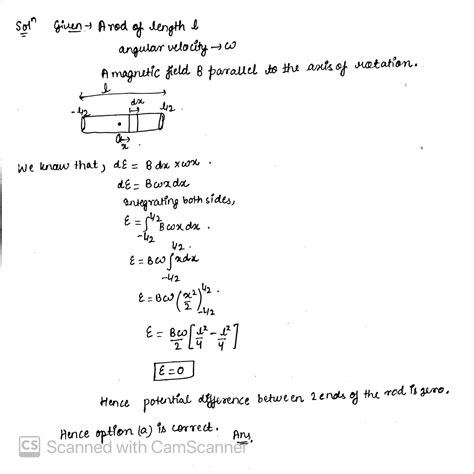 Solⁿ Given → A rod of length l
angular velocity → ω
A magnetic field B parallel to the axis of rotation.
l
-l/2 dx l/2
x
We know that, dε = B dx × ωx .
dε = Bωxdx
Integrating both sides,
ε = ∫_{-l/2}^{l/2} Bωx dx .
ε = Bω ∫_{-l/2}^{l/2} xdx
ε = Bω (x²/2)_{-l/2}^{l/2} .
ε = Bω/2 [l²/4 - l²/4]
ε = 0
Hence potential difference between 2 ends of the rod is zero.
Hence option (a) is correct. Ans.
CS Scanned with CamScanner